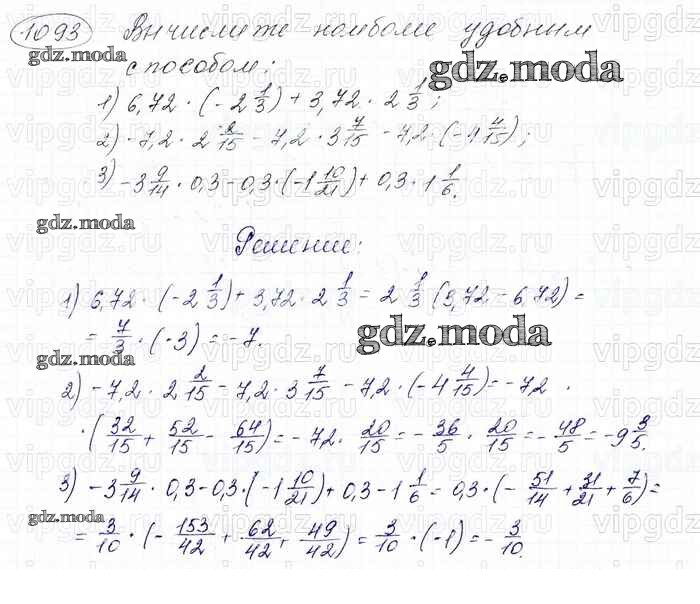 1093 Вычислите наиболее удобным
gdz.moda
способом:
gdz.moda
1) 6,72 · (-2 1/3) + 3,72 · 2 1/3;
2) -7,2 · 2 2/15 - 7,2 · 3 7/15 - 7,2 · (-4 4/15);
3) -3 9/14 · 0,3 - 0,3 · (-1 10/21) + 0,3 · 1 1/6.
gdz.moda
Решение:
1) 6,72 · (-2 1/3) + 3,72 · 2 1/3 = 2 1/3 (3,72 - 6,72) =
= 7/3 · (-3) = -7.
gdz.moda
gdz.moda
2) -7,2 · 2 2/15 - 7,2 · 3 7/15 - 7,2 · (-4 4/15) = -72 ·
· (32/15 + 52/15 - 64/15) = -72 · 20/15 = -36/5 · 20/15 = -48/5 = -9 3/5.
3) -3 9/14 · 0,3 - 0,3 · (-1 10/21) + 0,3 - 1 1/6 = 0,3 · (-51/14 + 31/21 + 7/6) =
gdz.moda
= 3/10 · (-153/42 + 62/42 + 49/42) = 3/10 · (-1) = -3/10.